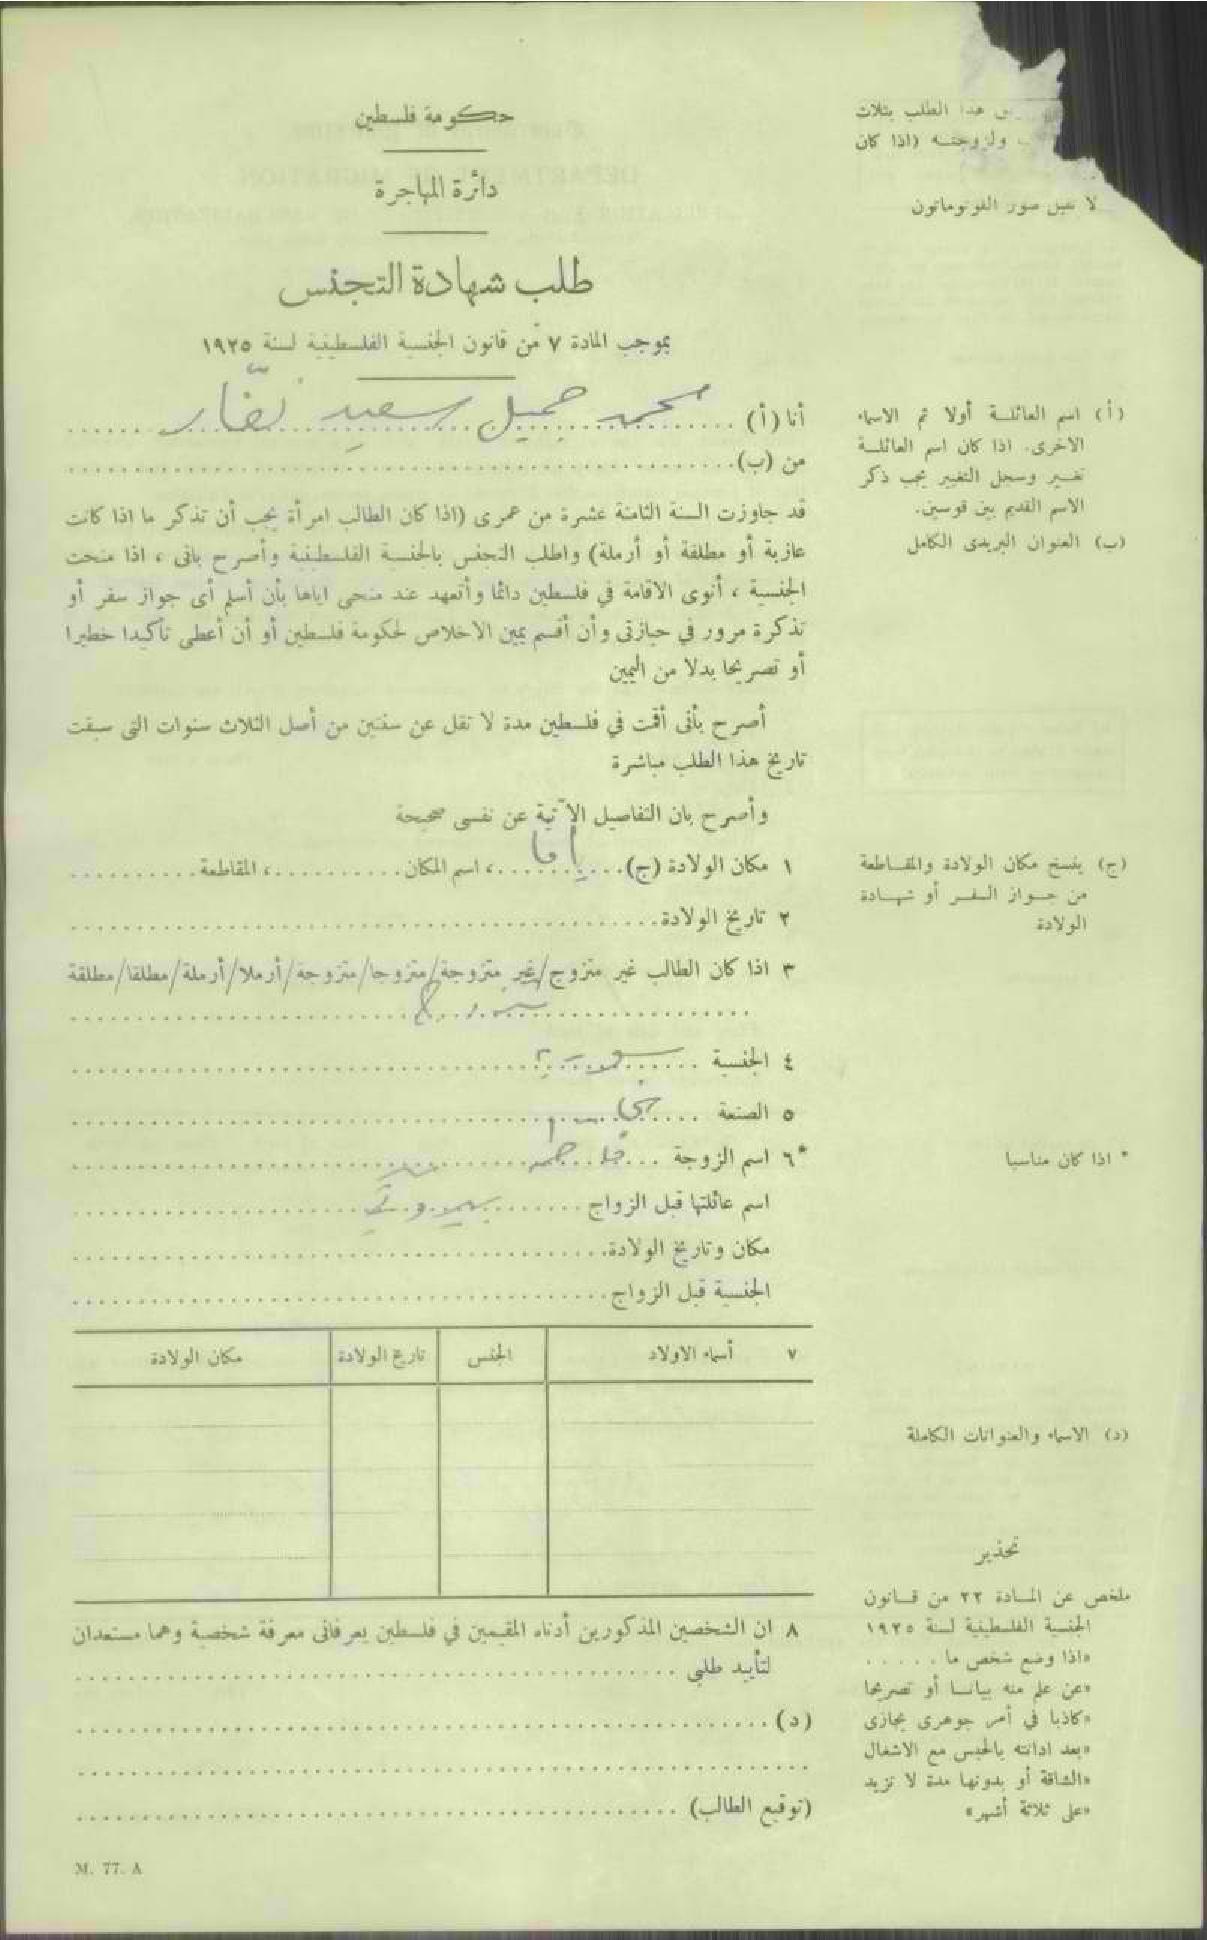 حكومة فلسطين
دائرة المهاجرة
طلب شهادة التجنس
بموجب المادة ٧ من قانون الجنسية الفلسطينية لسنة ١٩٢٥
هذا الطلب بثلاث
ولزوجته (اذا كان
لا تقبل صور الفوتوماتون
أنا (أ) محمد جميل سعيد
من (ب)
(أ) اسم العائلة أولا ثم الاسماء
الاخرى. اذا كان اسم العائلة
تغير وسجل التغيير يجب ذكر
الاسم القديم بين قوسين.
(ب) العنوان البريدى الكامل
قد جاوزت السنة الثامنة عشرة من عمرى (اذا كان الطالب امرأة يجب أن تذكر ما اذا كانت
عازبة أو مطلقة أو أرملة) واطلب التجنس بالجنسية الفلسطينية وأصرح بانى ، اذا منحت
الجنسية ، أنوى الاقامة في فلسطين دائما وأتعهد عند منحى اياها بأن أسلم أى جواز سفر أو
تذكرة مرور في حيازتى وأن أقسم يمين الاخلاص لحكومة فلسطين أو أن أعطى تأكيدا خطيرا
أو تصريحا بدلا من اليمين
أصرح بأنى أقمت في فلسطين مدة لا تقل عن سنتين من أصل الثلاث سنوات التى سبقت
تاريخ هذا الطلب مباشرة
وأصرح بان التفاصيل الآتية عن نفسى صحيحة
١ مكان الولادة (ج) يافا ، اسم المكان ، المقاطعة
(ج) ينسخ مكان الولادة والمقاطعة
من جواز السفر أو شهادة
الولادة
٢ تاريخ الولادة
٣ اذا كان الطالب غير متزوج/غير متزوجة/متزوجا/متزوجة/أرملا/أرملة/مطلقا/مطلقة
متزوج
٤ الجنسية سورية
٥ الصنعة نجار
*٦ اسم الزوجة فاطمه
* اذا كان مناسبا
اسم عائلتها قبل الزواج بيروتي
مكان وتاريخ الولادة
الجنسية قبل الزواج
٧ أسماء الاولاد الجنس تاريخ الولادة مكان الولادة
(د) الاسماء والعنوانات الكاملة
٨ ان الشخصين المذكورين أدناه المقيمين في فلسطين يعرفانى معرفة شخصية وهما مستعدان
لتأييد طلبى
(د)
(توقيع الطالب)
تحذير
ملخص عن المادة ٢٢ من قانون
الجنسية الفلسطينية لسنة ١٩٢٥
«اذا وضع شخص ما . . . . .
«عن علم منه بيانا أو تصريحا
«كاذبا في أمر جوهرى يجازى
«بعد ادانته بالحبس مع الاشغال
«الشاقة أو بدونها مدة لا تزيد
«على ثلاثة أشهر»
M. 77. A